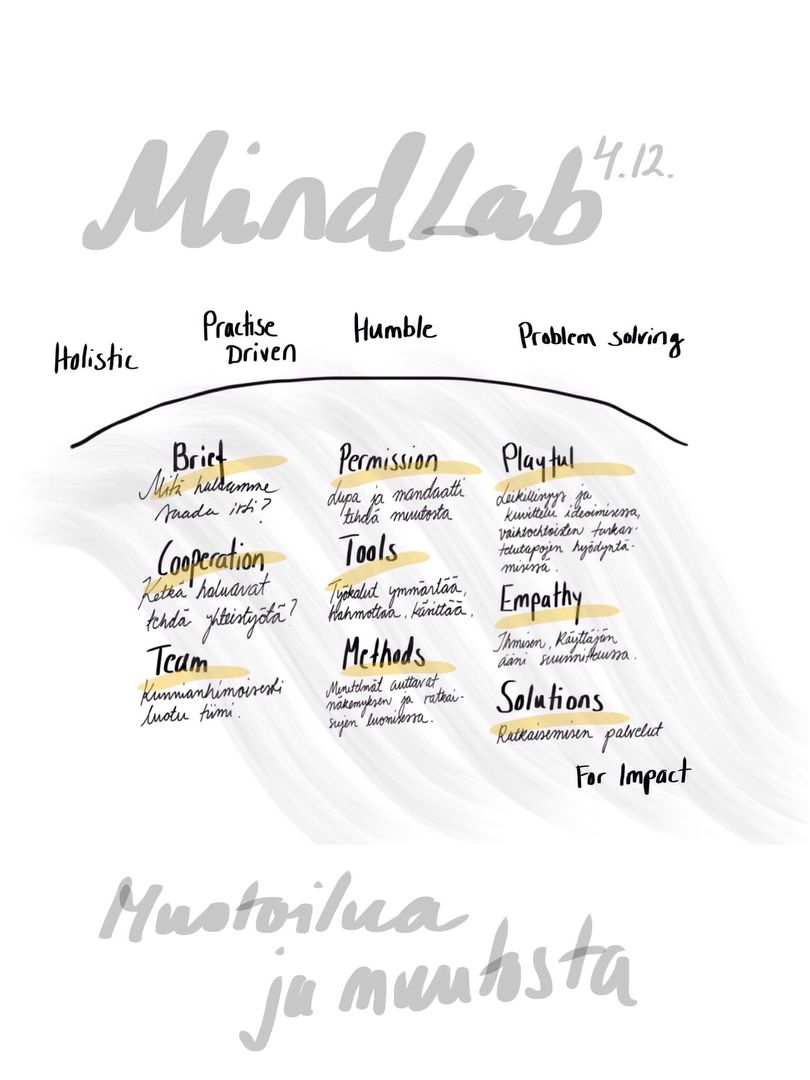 MindLab 4.12.
Holistic
Practise
Driven
Humble
Problem solving
Brief
Mitä haluamme
saada irti?
Cooperation
Ketkä haluavat
tehdä yhteistyötä?
Team
Kunnianhimoisesti
luotu tiimi.
Permission
Lupa ja mandaatti
tehdä muutosta
Tools
Työkalut ymmärtää,
hahmottaa, käsittää.
Methods
Menetelmät auttavat
näkemyksen ja ratkai-
sujen luomisessa.
Playful
Leikillisyys ja
kuvittelu ideoimisessa,
vaihtoehtoisten tarkas-
telutapojen hyödyntä-
misessä.
Empathy
Ihmisen, Käyttäjän
ääni suunnittelussa.
Solutions
Ratkaisemisen palvelut
For Impact
Muotoilua
ja muutosta